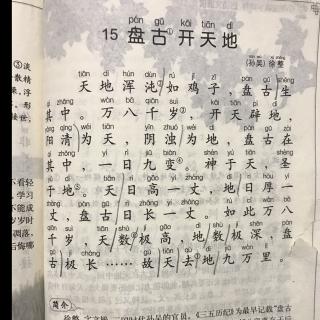 pán gǔ kāi tiān dì
15 盘古开天地
(孙吴) 徐整
tiān dì hún dùn rú jī zǐ pán gǔ shēng
天地浑沌如鸡子，盘古生
qí zhōng wàn bā qiān suì kāi tiān pì dì
其中。万八千岁，开天辟地，
yáng qīng wéi tiān yīn zhuó wéi dì pán gǔ zài
阳清为天，阴浊为地，盘古在
qí zhōng yī rì jiǔ biàn shén yú tiān shèng
其中，一日九变④。神于天，圣
yú dì tiān rì gāo yī zhàng dì rì hòu yī
于地。天日高一丈，地日厚一
zhàng pán gǔ rì zhǎng yī zhàng rú cǐ wàn bā
丈，盘古日长一丈。如此万八
qiān suì tiān shù jí gāo dì shù jí shēn pán
千岁，天数极高，地数极深，盘
gǔ jí cháng gù tiān qù dì jiǔ wàn lǐ
古极长……故天去地九万里。
简介
时代孙吴的官员。《三五历纪》为最早记载“盘古
③淡
散精
，浮
。形
接世，
不看轻
，学习
不能成
岁岁时
凋落，
后悔哪